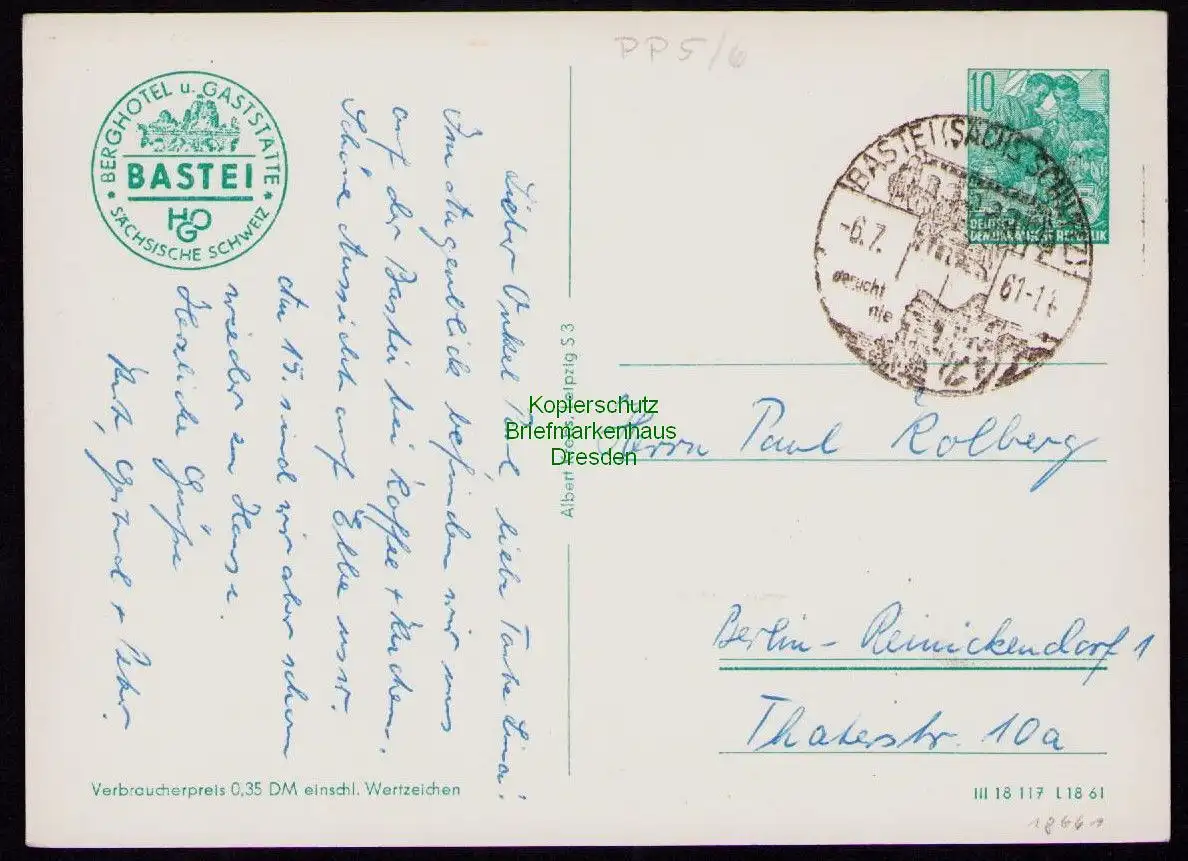 PP5/6
BERGHOTEL u. GASTSTÄTTE
BASTEI
HOG
* SÄCHSISCHE SCHWEIZ *
Lieber Onkel Paul, liebe Tante Lina!
Im Augenblick befinden wir uns
auf der Bastei bei Kaffee + Kuchen.
Schöne Aussicht auf Elbe usw.
Am 15. sind wir aber schon
wieder zu Hause.
Herzliche Grüße
Gertrud + Peter.
Verbraucherpreis 0,35 DM einschl. Wertzeichen
Albert Leipzig S 3
Kopierschutz
Briefmarkenhaus
Dresden
10
DEUTSCHE
DEMOKRATISCHE REPUBLIK
BASTEI (SÄCHS. SCHWEIZ)
-6.7. 61-14
besucht
die
Herrn Paul Kolberg
Berlin-Reinickendorf 1
Thaterstr. 10a
III 18 117 L 18 61